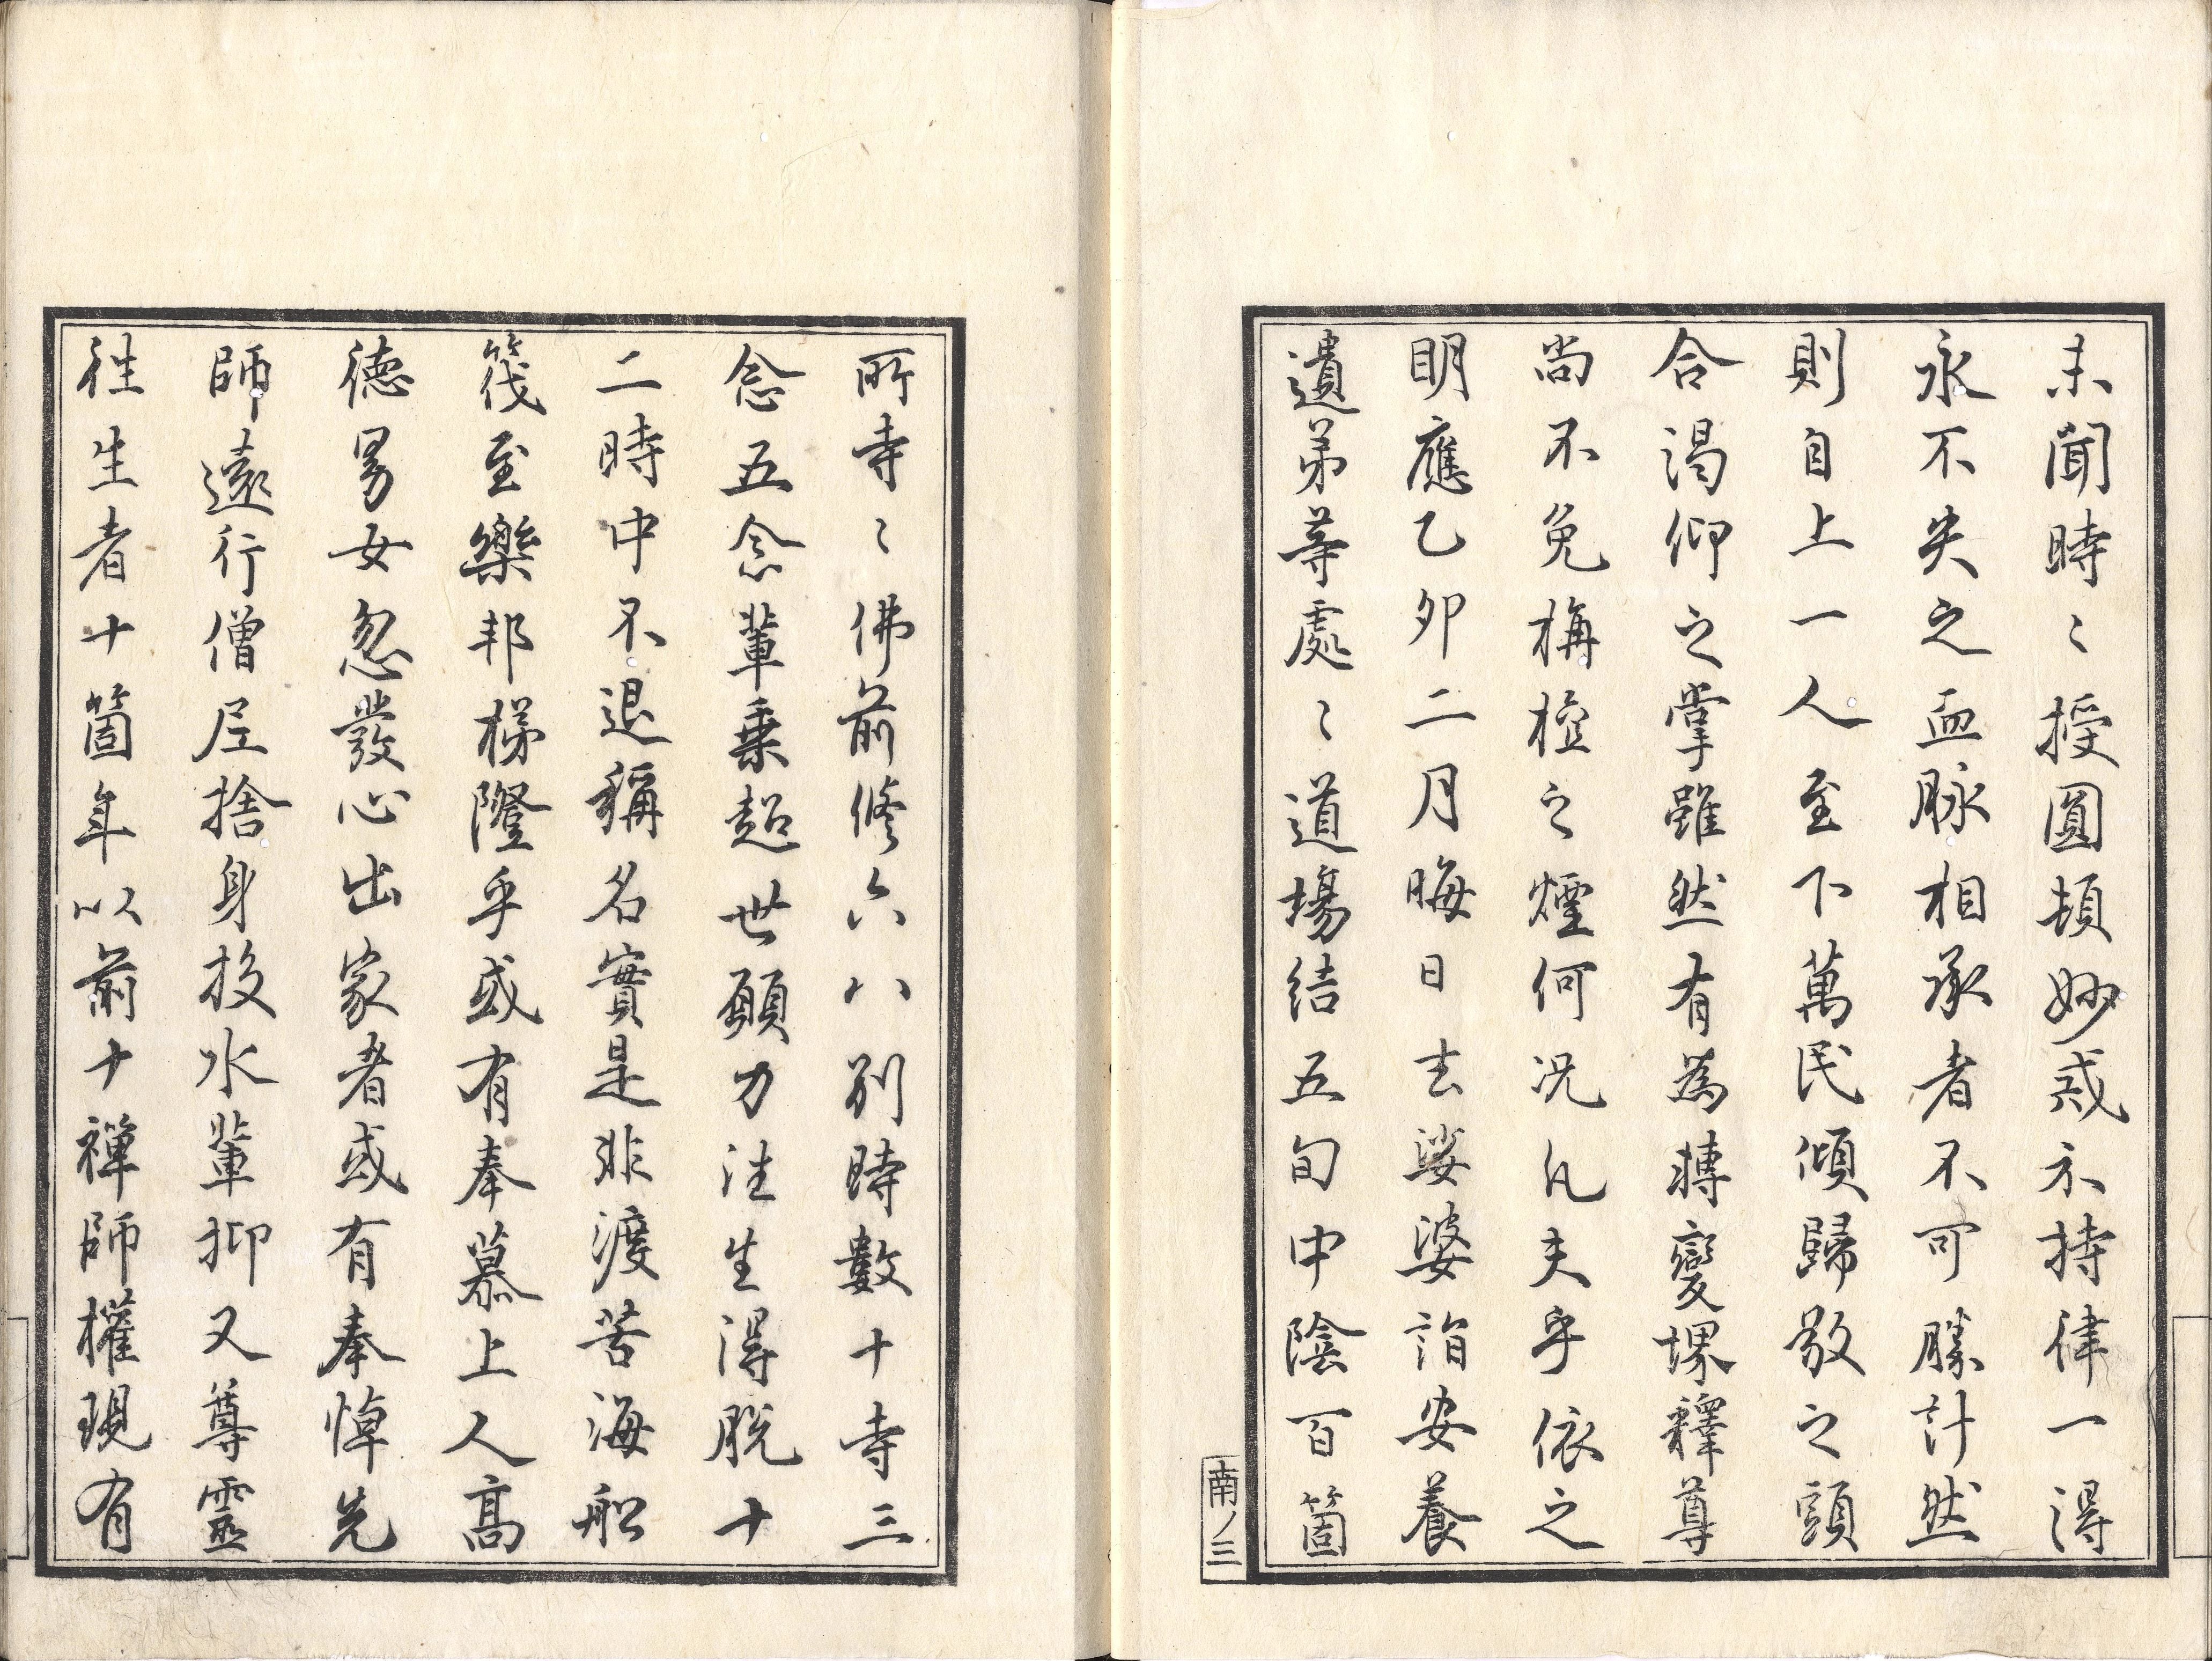 未聞時〻授圓頓妙戒示持律一得
永不失之血脉相承者不可勝計然
則自上一人至下萬民傾歸敬之頭
合渇仰之掌雖然有為轉變堺釋尊
尚不免栴檀之煙何况凡夫乎依之
明應乙卯二月晦日去娑婆詣安養
遺弟等處〻道場結五旬中陰百箇
所寺〻佛前修六八別時數十寺三
念五念輩乗超世願力往生得脱十
二時中不退稱名實是非渡苦海船
筏至樂邦梯隥乎或有奉慕上人高
德男女忽發心出家者或有奉悼先
師遠行僧尼捨身投水輩抑又尊靈
往生者十箇年以前十禪師權現有
南ノ三